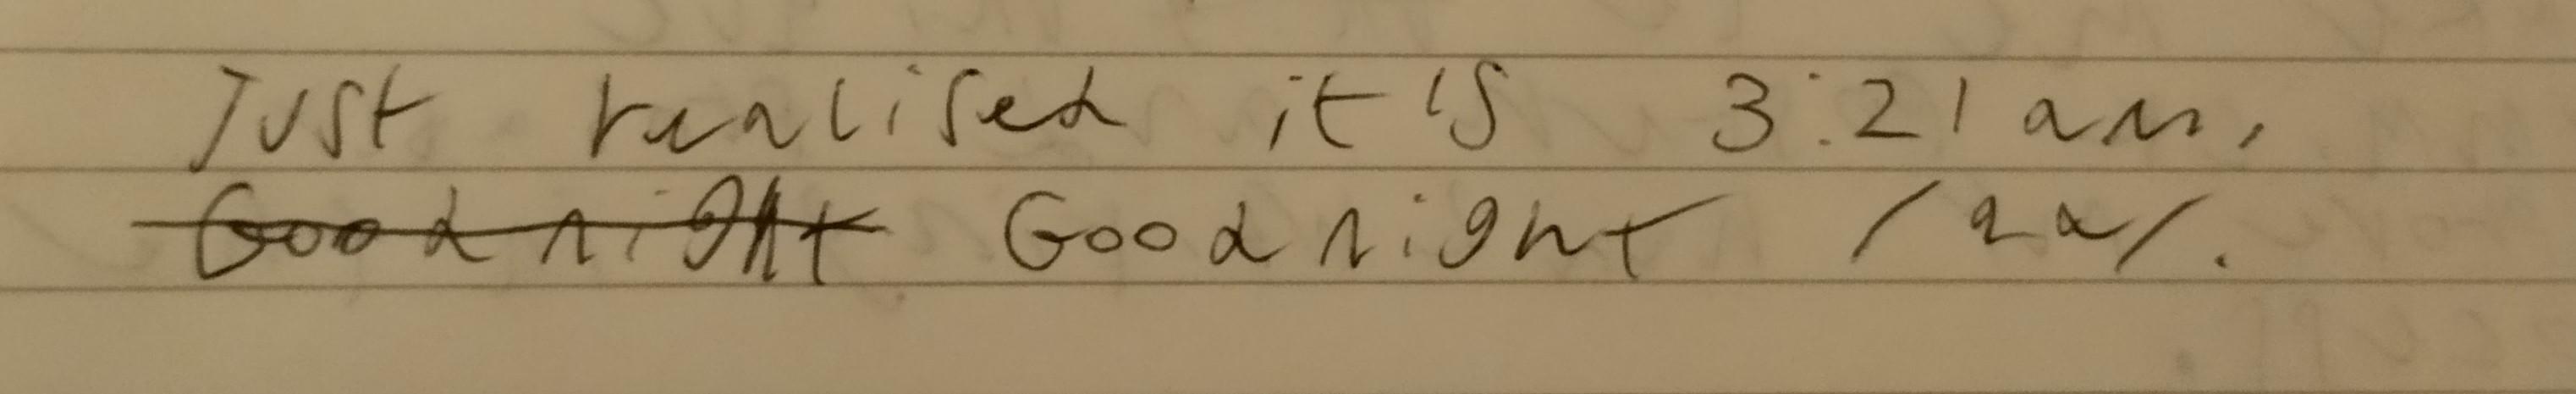 Just realised it is 3:21 am.
Goodnight Goodnight /qa/.